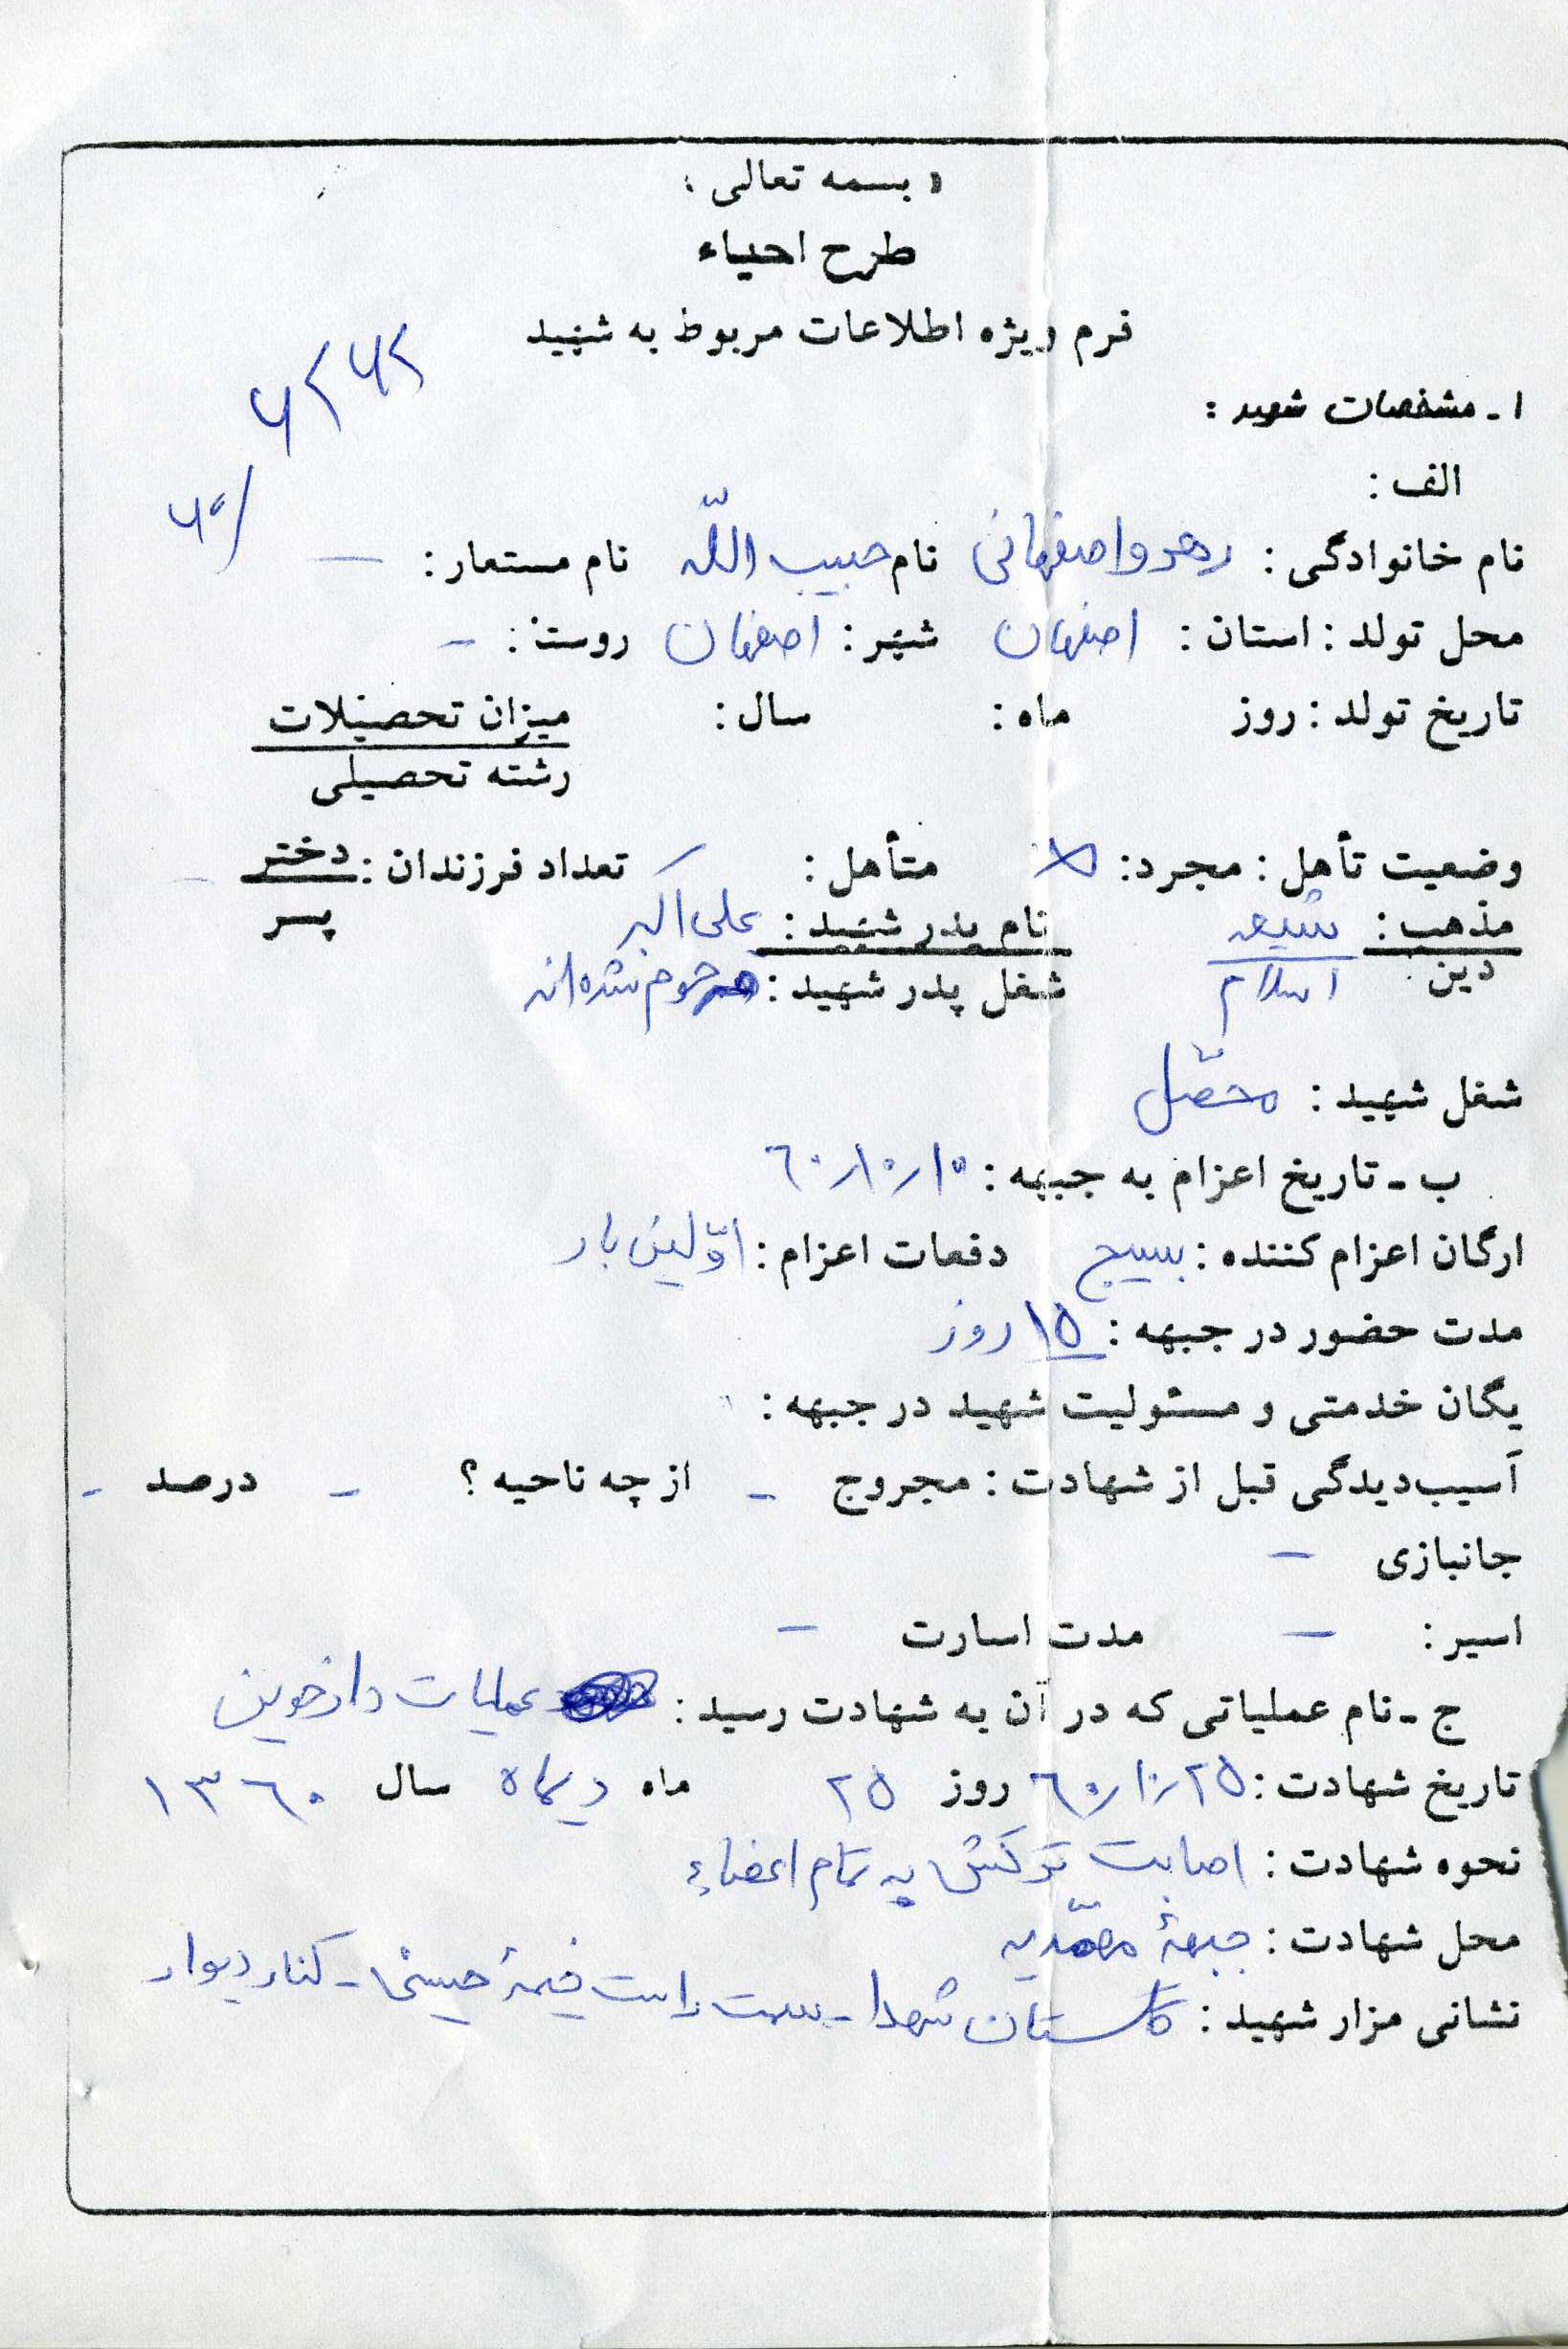 « بسمه تعالی »
طرح احیاء
فرم ویژه اطلاعات مربوط به شهید
۱ـ مشخصات شهید :
الف :
نام خانوادگی : رهرو اصفهانی نام حبیب اللّه نام مستعار : –
محل تولد : استان : اصفهان شهر : اصفهان روستا : –
تاریخ تولد : روز ماه : سال : میزان تحصیلات
رشته تحصیلی
وضعیت تأهل : مجرد : متأهل : تعداد فرزندان : دختر –
مذهب : شیعه نام پدر شهید : علی اکبر پسر
دین : اسلام شغل پدر شهید : مرحوم شده‌اند
شغل شهید : محصّل
ب ـ تاریخ اعزام به جبهه : ۶۰/۱۰/۱۰
ارگان اعزام کننده : بسیج دفعات اعزام : اوّلین بار
مدت حضور در جبهه : ۱۵ روز
یگان خدمتی و مسئولیت شهید در جبهه :
آسیب‌دیدگی قبل از شهادت : مجروح – از چه ناحیه ؟ – درصد –
جانبازی –
اسیر : – مدت اسارت –
ج ـ نام عملیاتی که در آن به شهادت رسید : عملیات دارخوین
تاریخ شهادت : ۶۰/۱۰/۲۵ روز ۲۵ ماه دیماه سال ۱۳۶۰
نحوه شهادت : اصابت ترکش به تمام اعضاء
محل شهادت : جبههٔ محمّدیه
نشانی مزار شهید : گلستان شهدا ـ سمت راست خیمهٔ حسینی ـ کنار دیوار